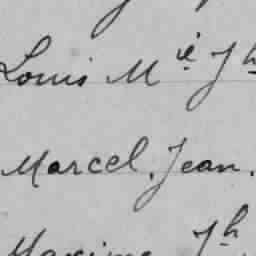 Louis Mie Jh
Marcel, Jean.
Maxime Jh